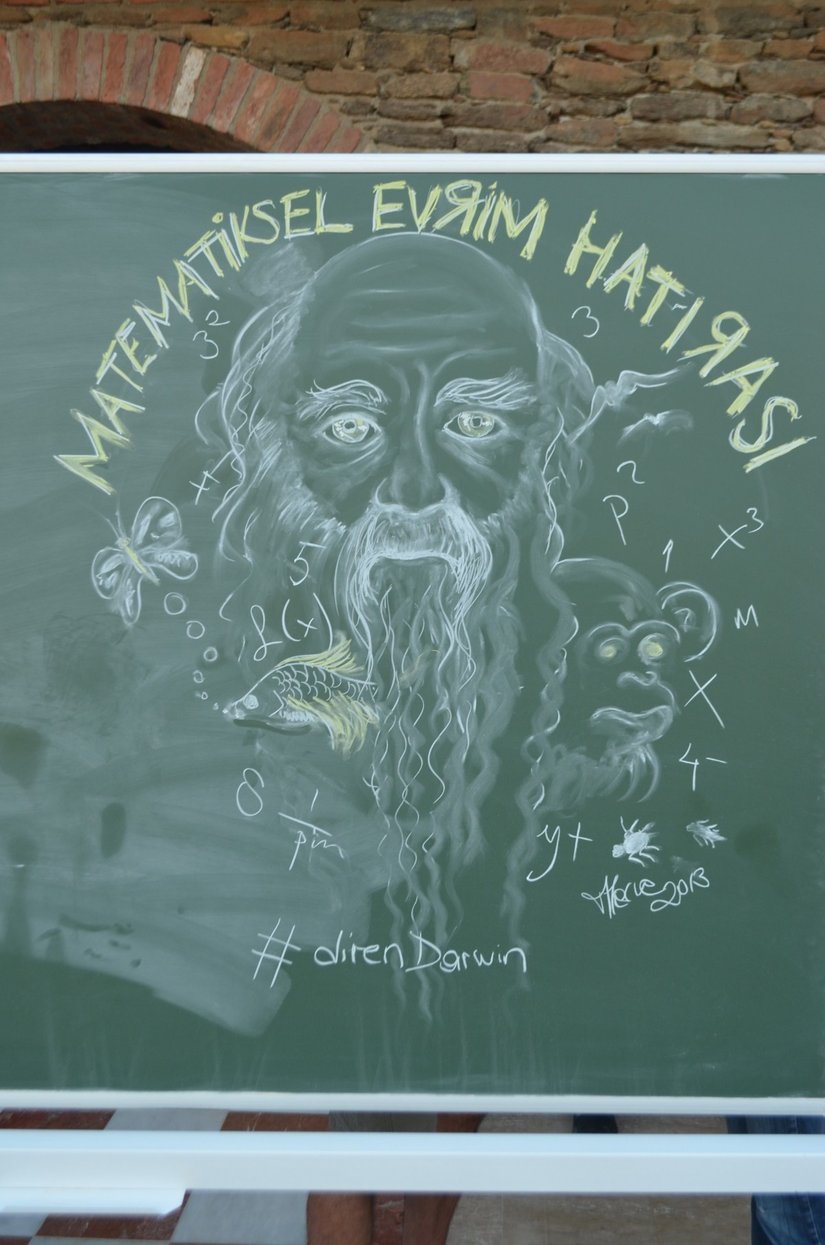 MATEMATİKSEL EVRİM HATIRASI
3²
3
x
p²
x³
1
5
f(x)
M
X
4-
8
1
pm
y+
Merve 2013
#direnDarwin